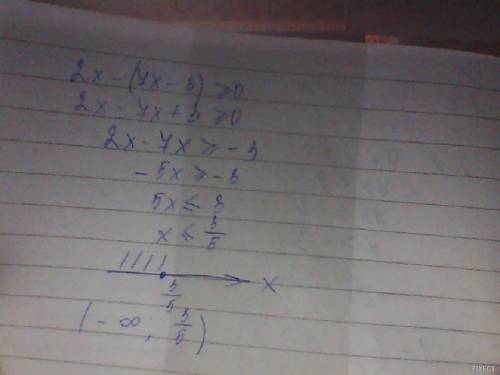 2x - (7x - 3) ≥ 0
2x - 7x + 3 ≥ 0
2x - 7x ≥ - 3
- 5x ≥ - 3
5x ≤ 3
x ≤ 3/5
3/5 x
(- ∞; 3/5)
PIXECT